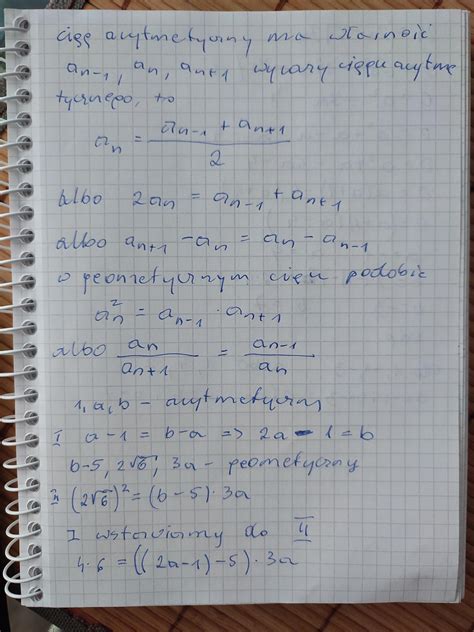 ciąg arytmetyczny ma własność
aₙ₋₁, aₙ, aₙ₊₁ wyrazy ciągu arytme
tycznego, to
aₙ = (aₙ₋₁ + aₙ₊₁) / 2
albo 2aₙ = aₙ₋₁ + aₙ₊₁
albo aₙ₊₁ - aₙ = aₙ - aₙ₋₁
o geometrycznym ciągu podobnie
aₙ² = aₙ₋₁ · aₙ₊₁
albo aₙ / aₙ₊₁ = aₙ₋₁ / aₙ
1, a, b - arytmetyczny
I a - 1 = b - a => 2a - 1 = b
b-5, 2√6, 3a - geometryczny
II (2√6)² = (b - 5) · 3a
I wstawiamy do II
4·6 = ((2a-1) - 5) · 3a